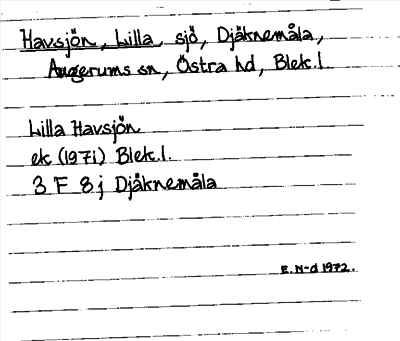 Havsjön, Lilla, sjö, Djäknemåla,
Augerums sn, Östra hd, Blek.l.
Lilla Havsjön
ek (1971) Blek.l.
3 F 8 j Djäknemåla
E. N-d 1972.